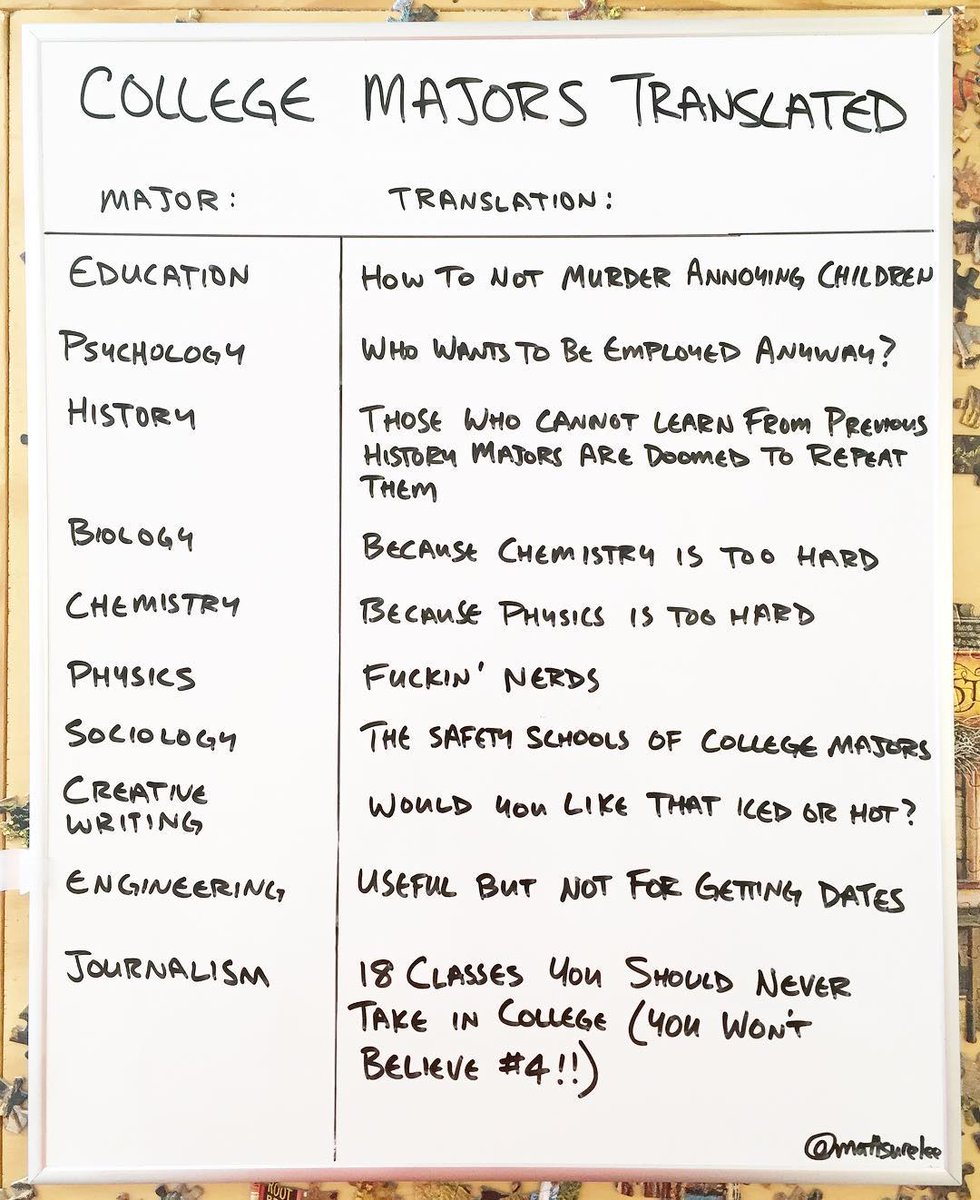 COLLEGE MAJORS TRANSLATED
MAJOR: TRANSLATION:
EDUCATION HOW TO NOT MURDER ANNOYING CHILDREN
PSYCHOLOGY WHO WANTS TO BE EMPLOYED ANYWAY?
HISTORY THOSE WHO CANNOT LEARN FROM PREVIOUS
HISTORY MAJORS ARE DOOMED TO REPEAT
THEM
BIOLOGY BECAUSE CHEMISTRY IS TOO HARD
CHEMISTRY BECAUSE PHYSICS IS TOO HARD
PHYSICS FUCKIN' NERDS
SOCIOLOGY THE SAFETY SCHOOLS OF COLLEGE MAJORS
CREATIVE
WRITING WOULD YOU LIKE THAT ICED OR HOT?
ENGINEERING USEFUL BUT NOT FOR GETTING DATES
JOURNALISM 18 CLASSES YOU SHOULD NEVER
TAKE IN COLLEGE (YOU WON'T
BELIEVE #4!!)
@mattsurelee
ROOT